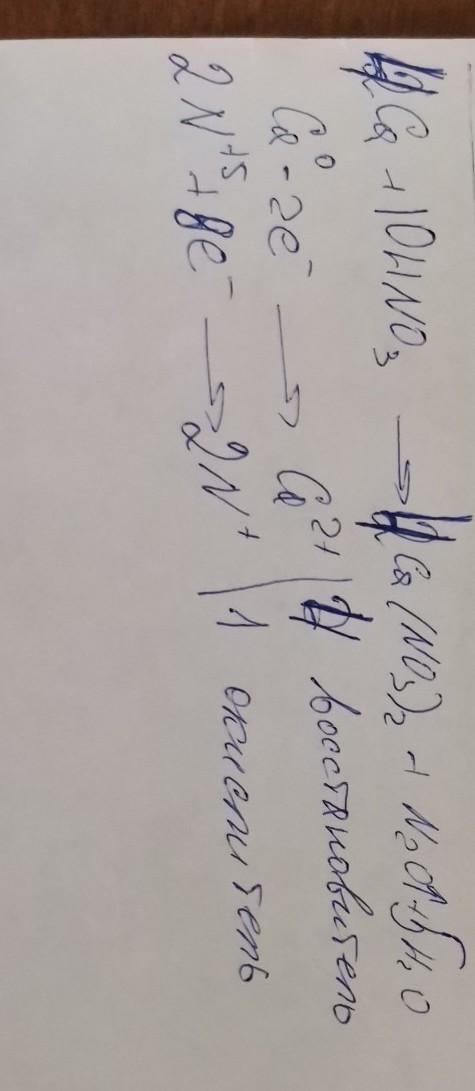 4Ca + 10HNO₃ → 4Ca(NO₃)₂ + N₂O↑ + 5H₂O
Ca⁰ - 2e⁻ → Ca²⁺ | 4 восстановитель
2N⁺⁵ + 8e⁻ → 2N⁺ | 1 окислитель